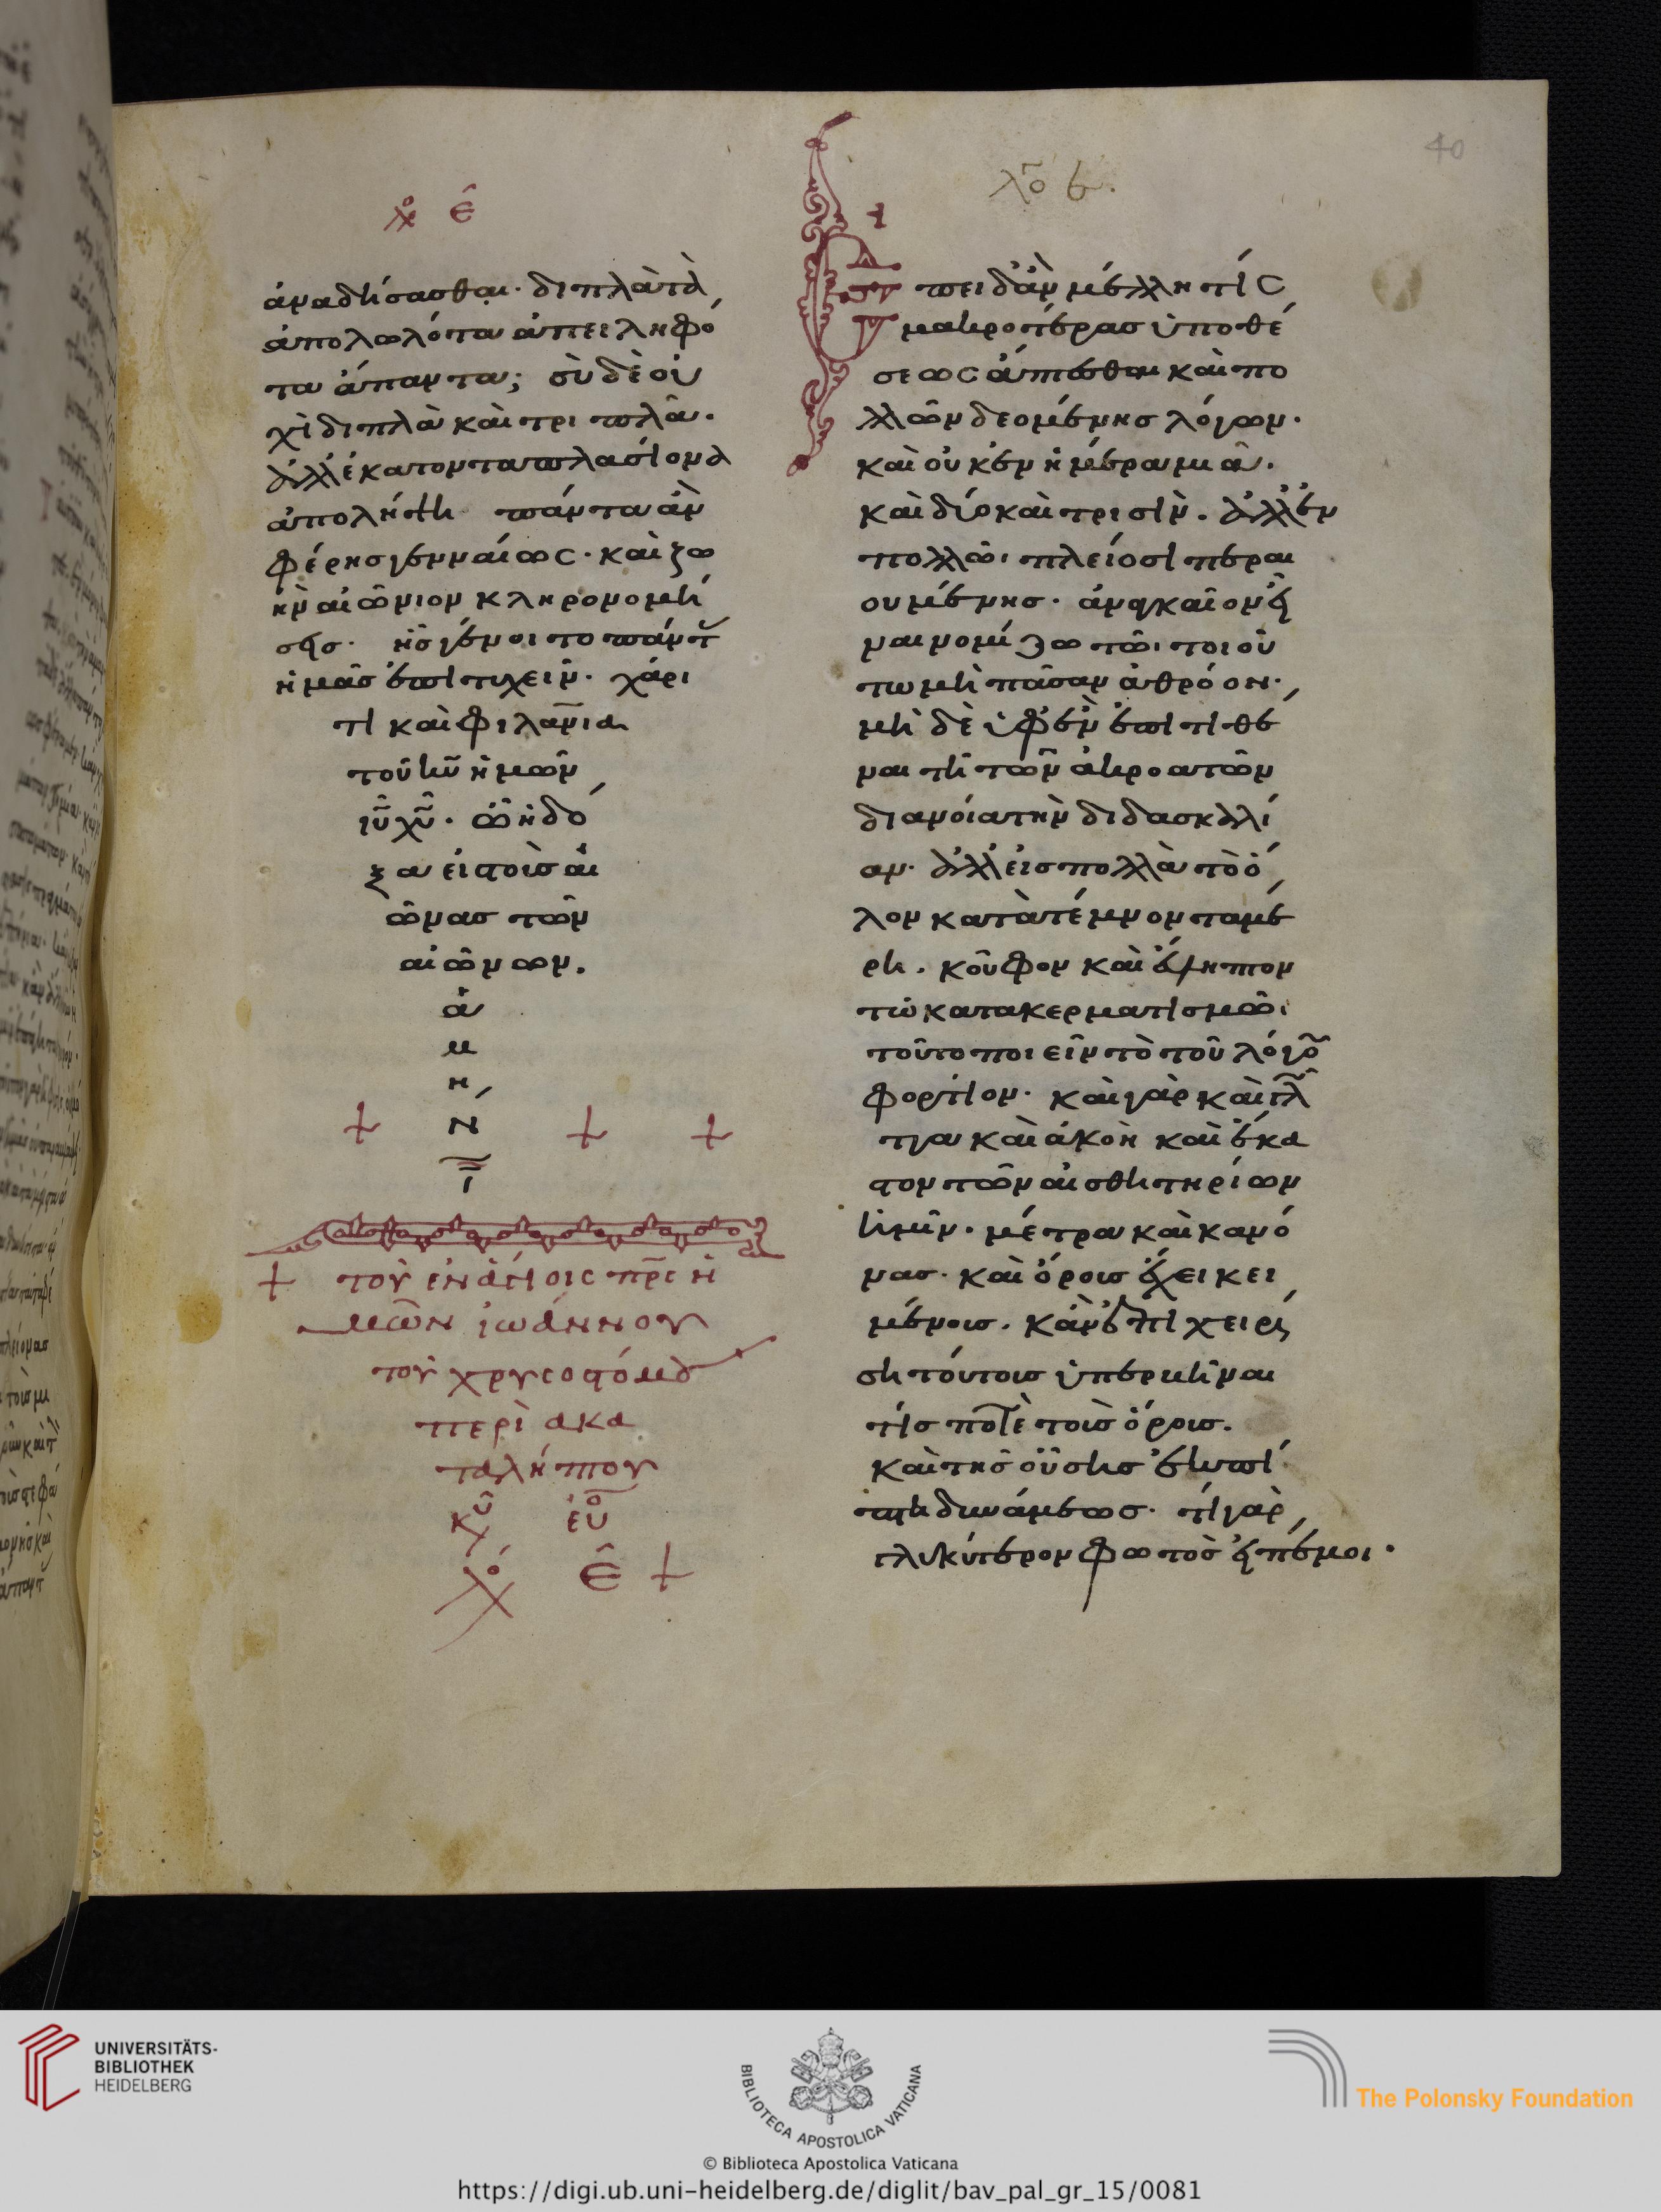 40
λο β.
χρ ε
ἀναδήσασθαι· διπλὰ τὰ
ἀπολωλότα ἀπειληφό
τα ἅπαντα; σὺ δὲ οὐ
χὶ διπλὰ καὶ τριπλᾶ.
ἀλλ' ἑκατονταπλασίονα
ἀπολήψη πάντα ἂν
φέρης γενναίως· καὶ ζω
ὴν αἰώνιον κληρονομή
σεις· ἧς γένοιτο πάντ
ἡμᾶς ἐπιτυχεῖν· χάρι
τι καὶ φιλανια
τοῦ κυ ἡμῶν
ιυ χυ· ὧ ἡ δό
ξα εἰς τοὺς αἰ
ῶνας τῶν
αἰώνων.
ἀ
μ
η
Ν
+ τοῦ ἐν ἁγίοις πρς ἡ
μῶν ἰωάννου
τοῦ χρυσοστόμου
περὶ ακα
ταλήπτου
λο ε +
Ἐπειδὰν μέλλη τίς
μακροτέρας ὑποθέ
σεως ἅπτεσθαι καὶ πο
λλῶν δεομένης λόγων·
καὶ οὐκ ἐν ἡμέρα μιᾶ.
καὶ δύο καὶ τρισὶν. ἀλλ' ἐν
πολλῶι πλείοσι περαι
ουμένης· ἀναγκαῖον εἶ
ναι νομίζω τῶι ποιοῦ
τω μὴ πᾶσαν ἀθρόον·
μὴ δὲ ὑφ' ἓν ἐπιτιθέ
ναι τῆ τῶν ἀκροατῶν
διανοία τὴν διδασκαλί
αν· ἀλλ' εἰς πολλὰ τὸ ὅ
λον κατατέμνοντα μέ
ρη. κοῦφον καὶ εὔληπτον
τῶ κατακερματισμῶι
τοῦτο ποιεῖν τὸ τοῦ λόγου
φορτίον· καὶ γὰρ καὶ γλῶ
ττα καὶ ἀκοὴ καὶ ἕκα
στον τῶν αἰσθητηρίων
ἡμῖν· μέτρα καὶ κανό
νας· καὶ ὅρους ἔχει κει
μένους. κἂν ἐπιχειρή
ση τούτους ὑπερβῆναι
τίς ποτὲ τοὺς ὅρους.
καὶ τῆς οὔσης ἐκπί
πτει δυνάμεως· τί γὰρ
γλυκύτερον φωτὸς εἰπέ μοι·
UNIVERSITÄTS-
BIBLIOTHEK
HEIDELBERG
BIBLIOTECA APOSTOLICA VATICANA
The Polonsky Foundation
© Biblioteca Apostolica Vaticana
https://digi.ub.uni-heidelberg.de/diglit/bav_pal_gr_15/0081